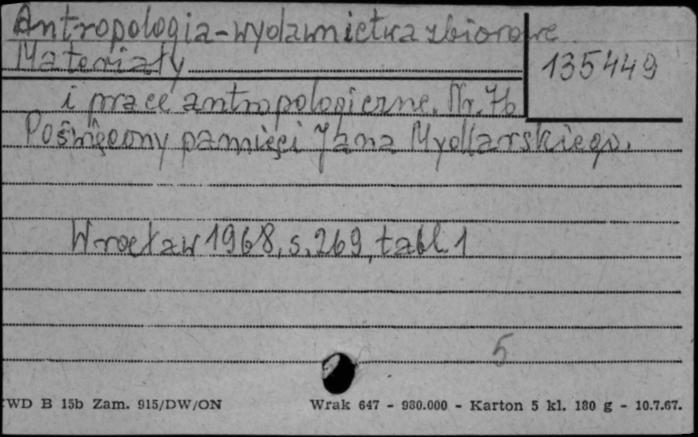 Antropologia-wydawnictwa zbiorowe
Materiały
135449
i prace antropologiczne. Nr. 76
Poświęcony pamięci Jana Mydlarskiego.
Wrocław 1968, s. 269, tabl. 1
5
WD B 15b Zam. 915/DW/ON
Wrak 647 - 980.000 - Karton 5 kl. 180 g - 10.7.67.